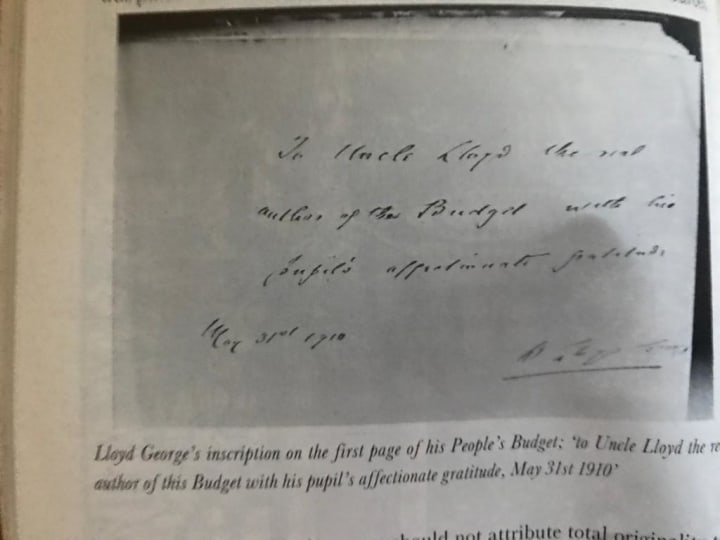 To Uncle Lloyd the real
author of this Budget with his
pupil's affectionate gratitude
May 31st 1910
Lloyd George's inscription on the first page of his People's Budget; 'to Uncle Lloyd the
author of this Budget with his pupil's affectionate gratitude, May 31st 1910'
should not attribute total